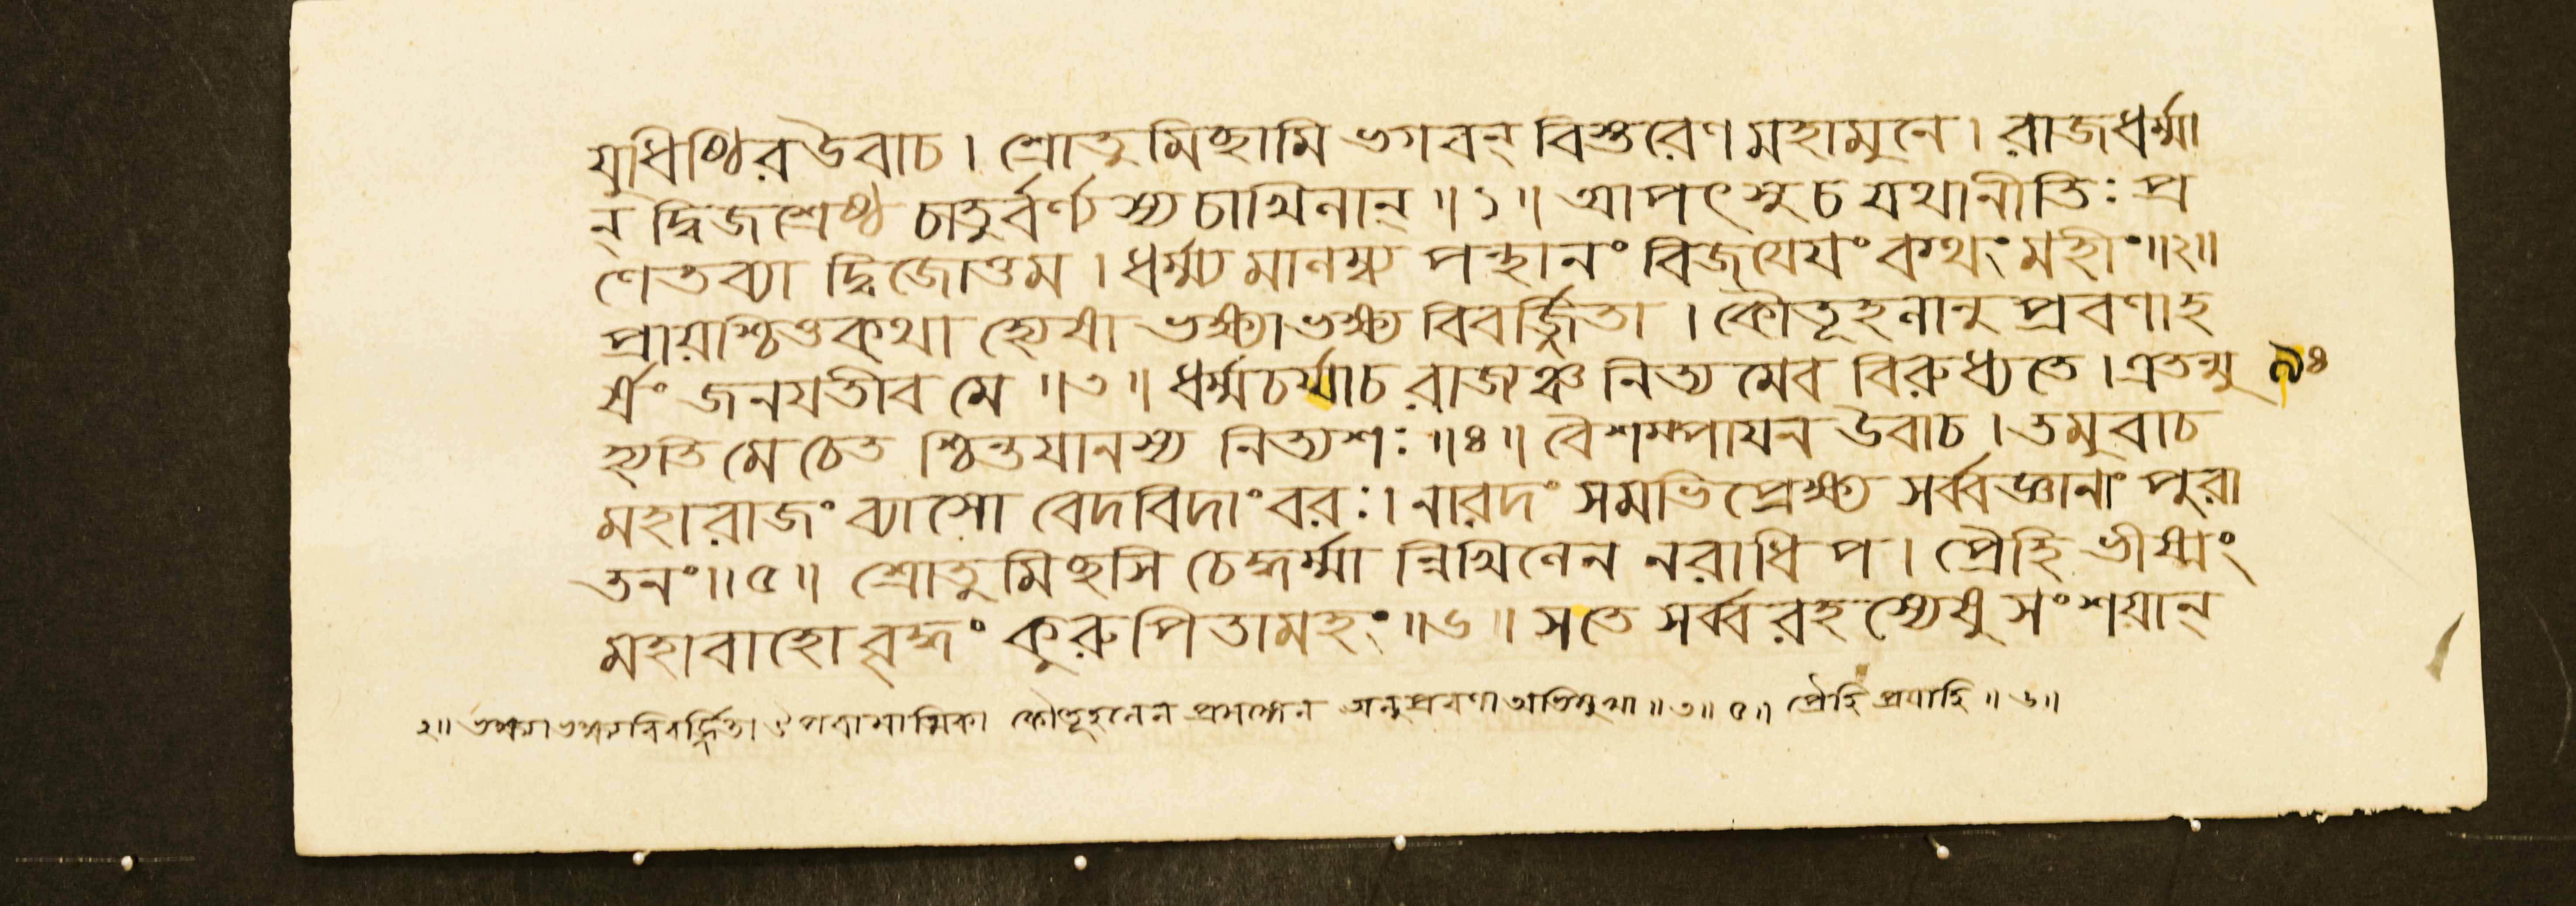 যুধিষ্ঠির উবাচ। শ্রোতুমিচ্ছামি ভগবন্ বিস্তরেণ মহামুনে। রাজধর্ম্মা
ন্ দ্বিজশ্রেষ্ঠ চাতুর্বর্ণ্যস্য চাখিলান্ ॥১॥ আপৎসু চ যথা নীতিঃ প্র
ণেতব্যা দ্বিজোত্তম। ধর্ম্ম্যমালম্ব্য পন্থানং বিজয়েয়ং কথং মহীং॥২॥
প্রায়শ্চিত্তকথা হ্যেষা ভক্ষ্যাভক্ষ্য বিবর্জ্জিতা। কৌতূহলানুপ্রবণা হ
র্ষং জনয়তীব মে ॥৩॥ ধর্ম্মচর্য্যা চ রাজ্যঞ্চ নিত্যমেব বিরুধ্যতে। এতন্মু ৯৪
হ্যতি মে চেতশ্চিন্তয়ানস্য নিত্যশঃ ॥৪॥ বৈশম্পায়ন উবাচ। তমুবাচ
মহারাজং ব্যাসো বেদবিদাংবরঃ। নারদং সমভিপ্রেক্ষ্য সর্ব্বজ্ঞানাং পুরা
তনং॥৫॥ শ্রোতুমিচ্ছসি চেদ্ধর্ম্মান্নিখিলেন নরাধিপ। প্রৈহি ভীষ্মং
মহাবাহো বৃদ্ধং কুরুপিতামহং ॥৬॥ স তে সর্ব্বরহস্যেষু সংশয়ান্
২॥ ভক্ষ্যাভক্ষ্যবিবর্জ্জিতা কৌতূহলেন অনুপ্রবণা অভিমুখা ॥৩॥ ৫॥ প্রৈহি প্রযাহি ॥৬॥